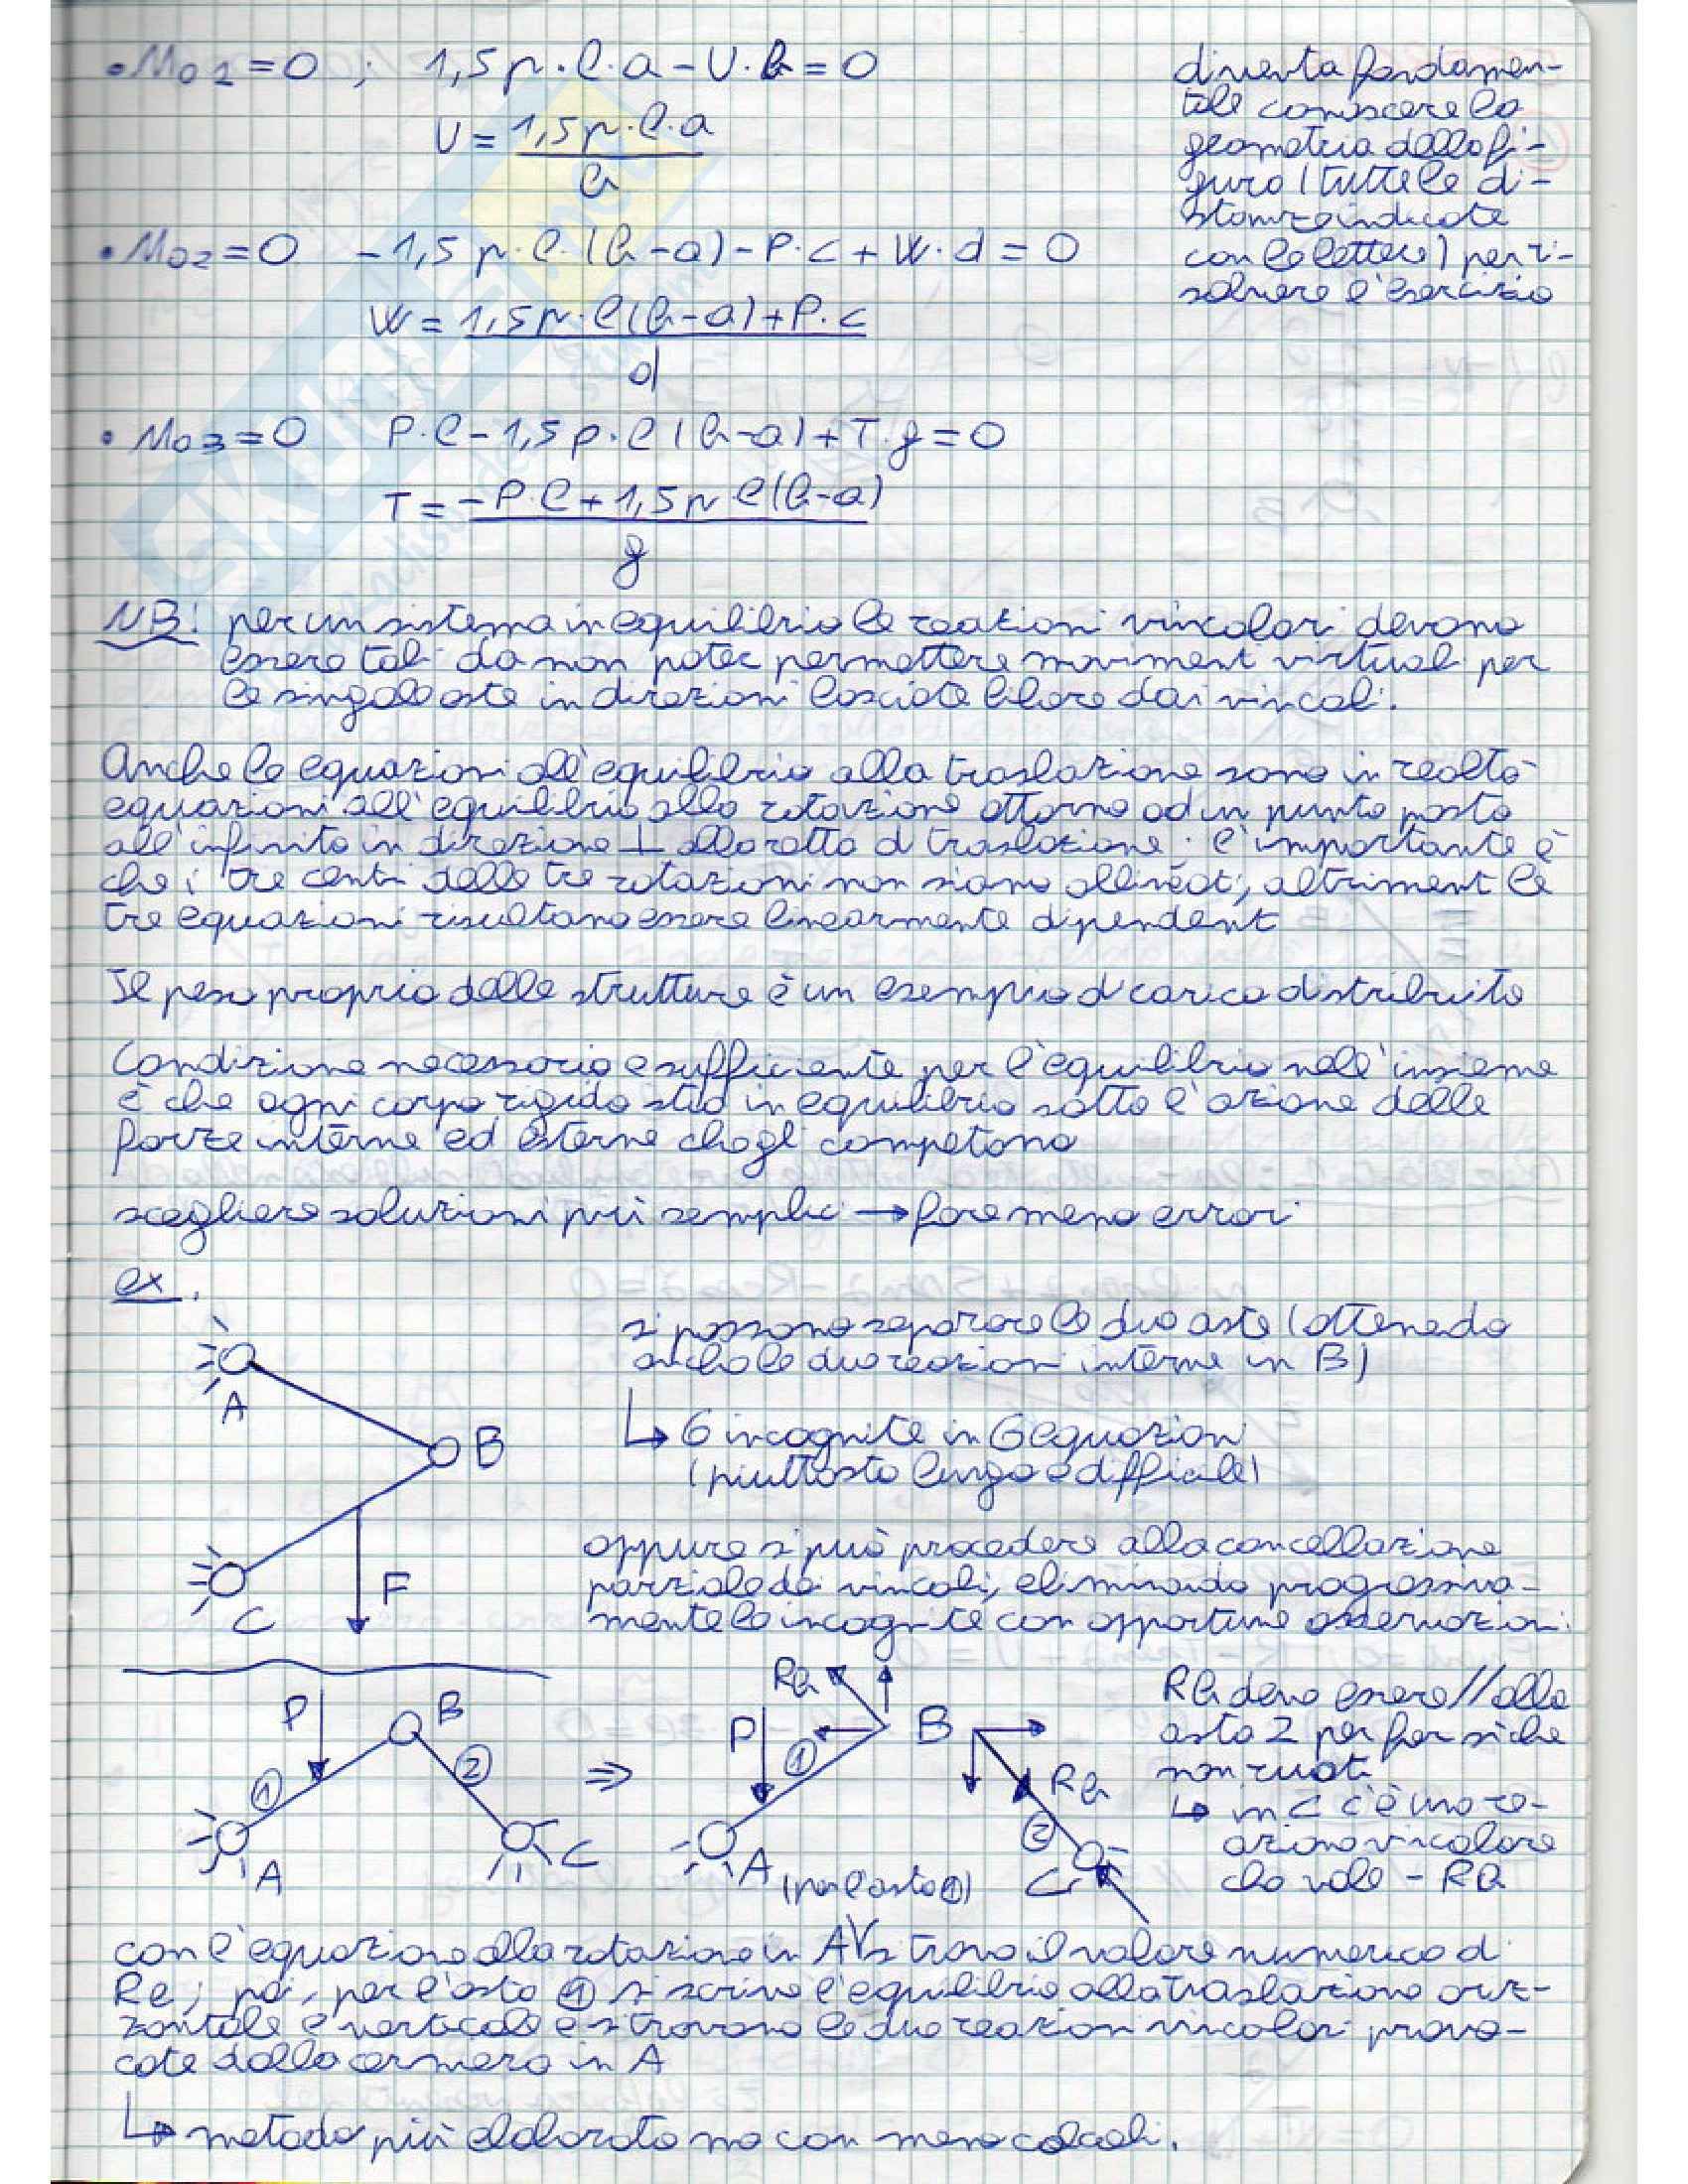 • M01 = 0 ; 1,5 p · l · a − U · h = 0
U = 1,5 p · l · a
h
• M02 = 0 − 1,5 p · l · (h − a) − P · c + W · d = 0
W = 1,5 p · l (h − a) + P · c
d
• M03 = 0 P · l − 1,5 p · l (h − a) + T · g = 0
T = − P · l + 1,5 p l (h − a)
g
diventa fondamen-
tale conoscere la
geometria della fi-
gura (tutte le di-
stanze indicate
con le lettere) per ri-
solvere l'esercizio
NB: per un sistema in equilibrio le reazioni vincolari devono
essere tali da non poter permettere movimenti virtuali per
le singole aste in direzioni lasciate libere dai vincoli.
Anche le equazioni all'equilibrio alla traslazione sono in realtà
equazioni all'equilibrio alla rotazione attorno ad un punto posto
all'infinito in direzione ⊥ alla retta di traslazione; l'importante è
che i tre centri delle tre rotazioni non siano allineati, altrimenti le
tre equazioni risultano essere linearmente dipendenti
Il peso proprio delle strutture è un esempio di carico distribuito
Condizione necessaria e sufficiente per l'equilibrio nell'insieme
è che ogni corpo rigido stia in equilibrio sotto l'azione delle
forze interne ed esterne che gli competono
scegliere soluzioni più semplici → fare meno errori
ex.
A
B
C
F
si possono separare le due aste (ottenendo
anche le due reazioni interne in B)
↳ 6 incognite in 6 equazioni
(piuttosto lungo e difficile)
oppure si può procedere alla cancellazione
parziale dei vincoli, eliminando progressiva-
mente le incognite con opportune osservazioni:
P
B
1
2
A
C
⇒
RB
P
B
1
A (per l'asta 1)
RB
2
C
RB deve essere // alla
asta 2 per far sì che
non ruoti
↳ in C c'è una re-
azione vincolare
che vale − RB
con l'equazione alla rotazione in A si trova il valore numerico di
RB; poi, per l'asta 1 si scrive l'equilibrio alla traslazione oriz-
zontale e verticale e si trovano le due reazioni vincolari provo-
cate dalla cerniera in A
↳ metodo più elaborato ma con meno calcoli.
SKUOLA.net